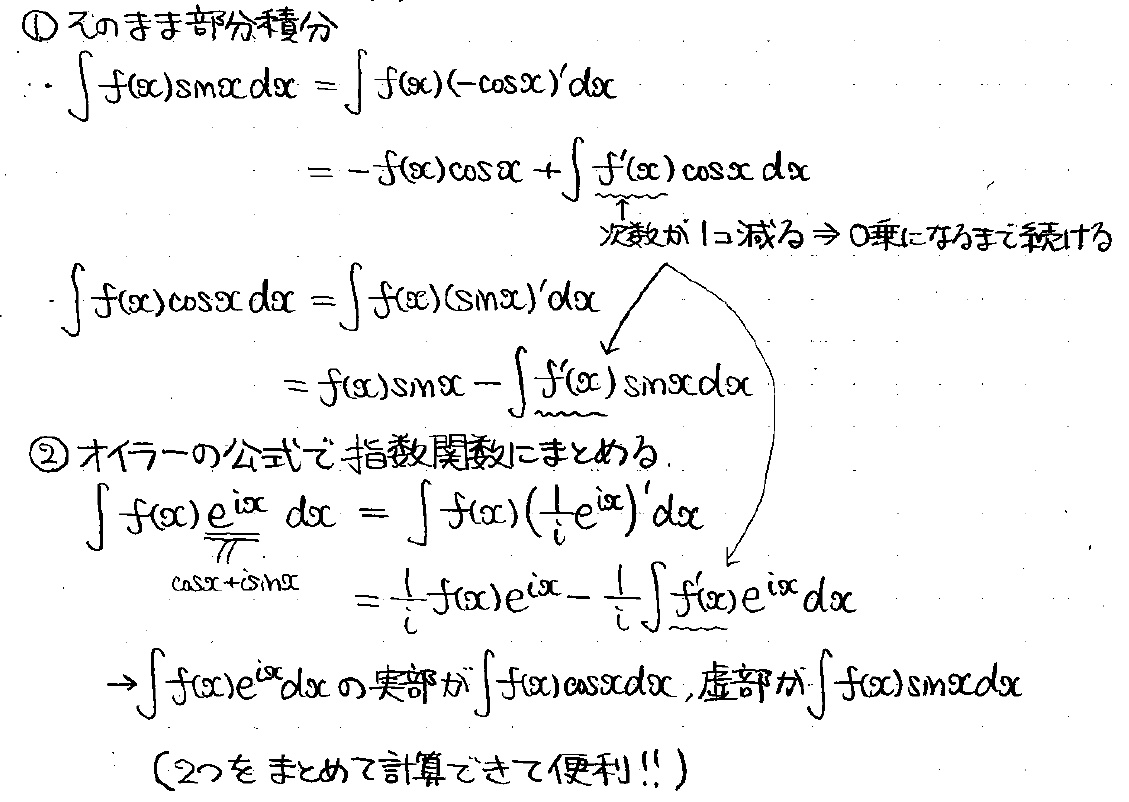 ① そのまま部分積分
・∫f(x)sinxdx = ∫f(x)(-cosx)'dx
= -f(x)cosx + ∫f'(x)cosxdx
次数が1コ減る⇒0乗になるまで続ける
・∫f(x)cosxdx = ∫f(x)(sinx)'dx
= f(x)sinx - ∫f'(x)sinxdx
② オイラーの公式で指数関数にまとめる.
∫f(x)e^{ix}dx = ∫f(x)(\frac{1}{i}e^{ix})'dx
cosx+isinx
= \frac{1}{i}f(x)e^{ix} - \frac{1}{i}∫f'(x)e^{ix}dx
→∫f(x)e^{ix}dxの実部が∫f(x)cosxdx, 虚部が∫f(x)sinxdx
(2つをまとめて計算できて便利!!)